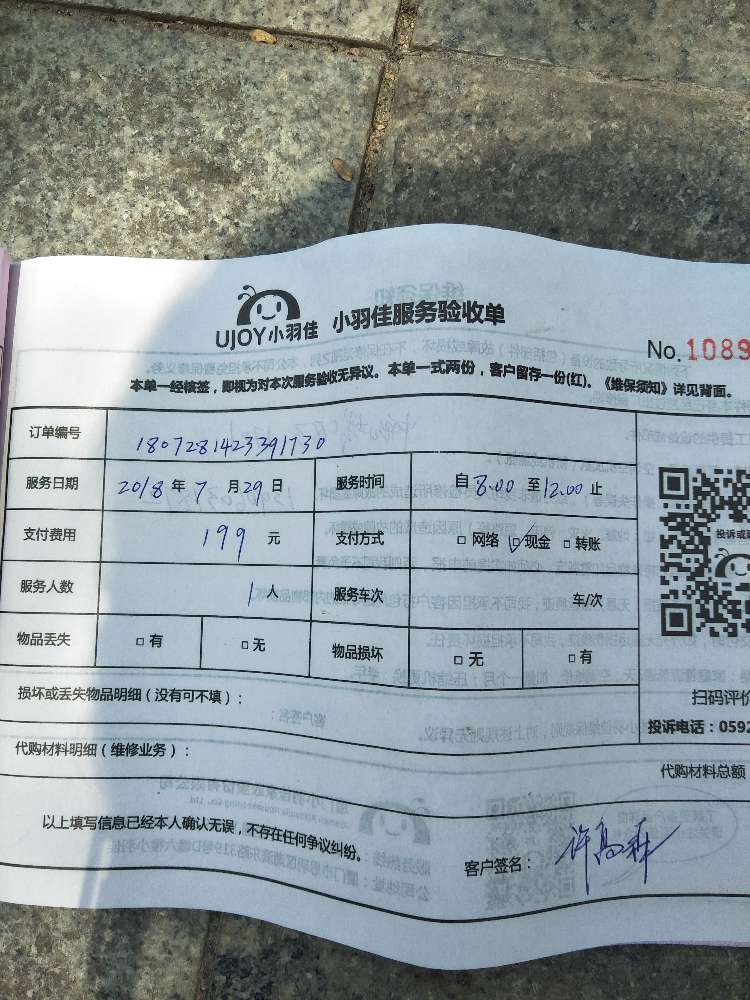 UJOY小羽佳 小羽佳服务验收单
No.1089
本单一经核签，即视为对本次服务验收无异议。本单一式两份，客户留存一份(红)。《维保须知》详见背面。
订单编号 1807281423391730
服务日期 2018年7月29日 服务时间 自8:00至12:00止
支付费用 199元 支付方式 □网络 ☑现金 □转账
服务人数 1人 服务车次 车/次
物品丢失 □有 □无 物品损坏 □无 □有
损坏或丢失物品明细（没有可不填）：
投诉或
扫码评价
投诉电话：0592
代购材料明细（维修业务）：
代购材料总额
以上填写信息已经本人确认无误，不存在任何争议纠纷。
客户签名：许高森